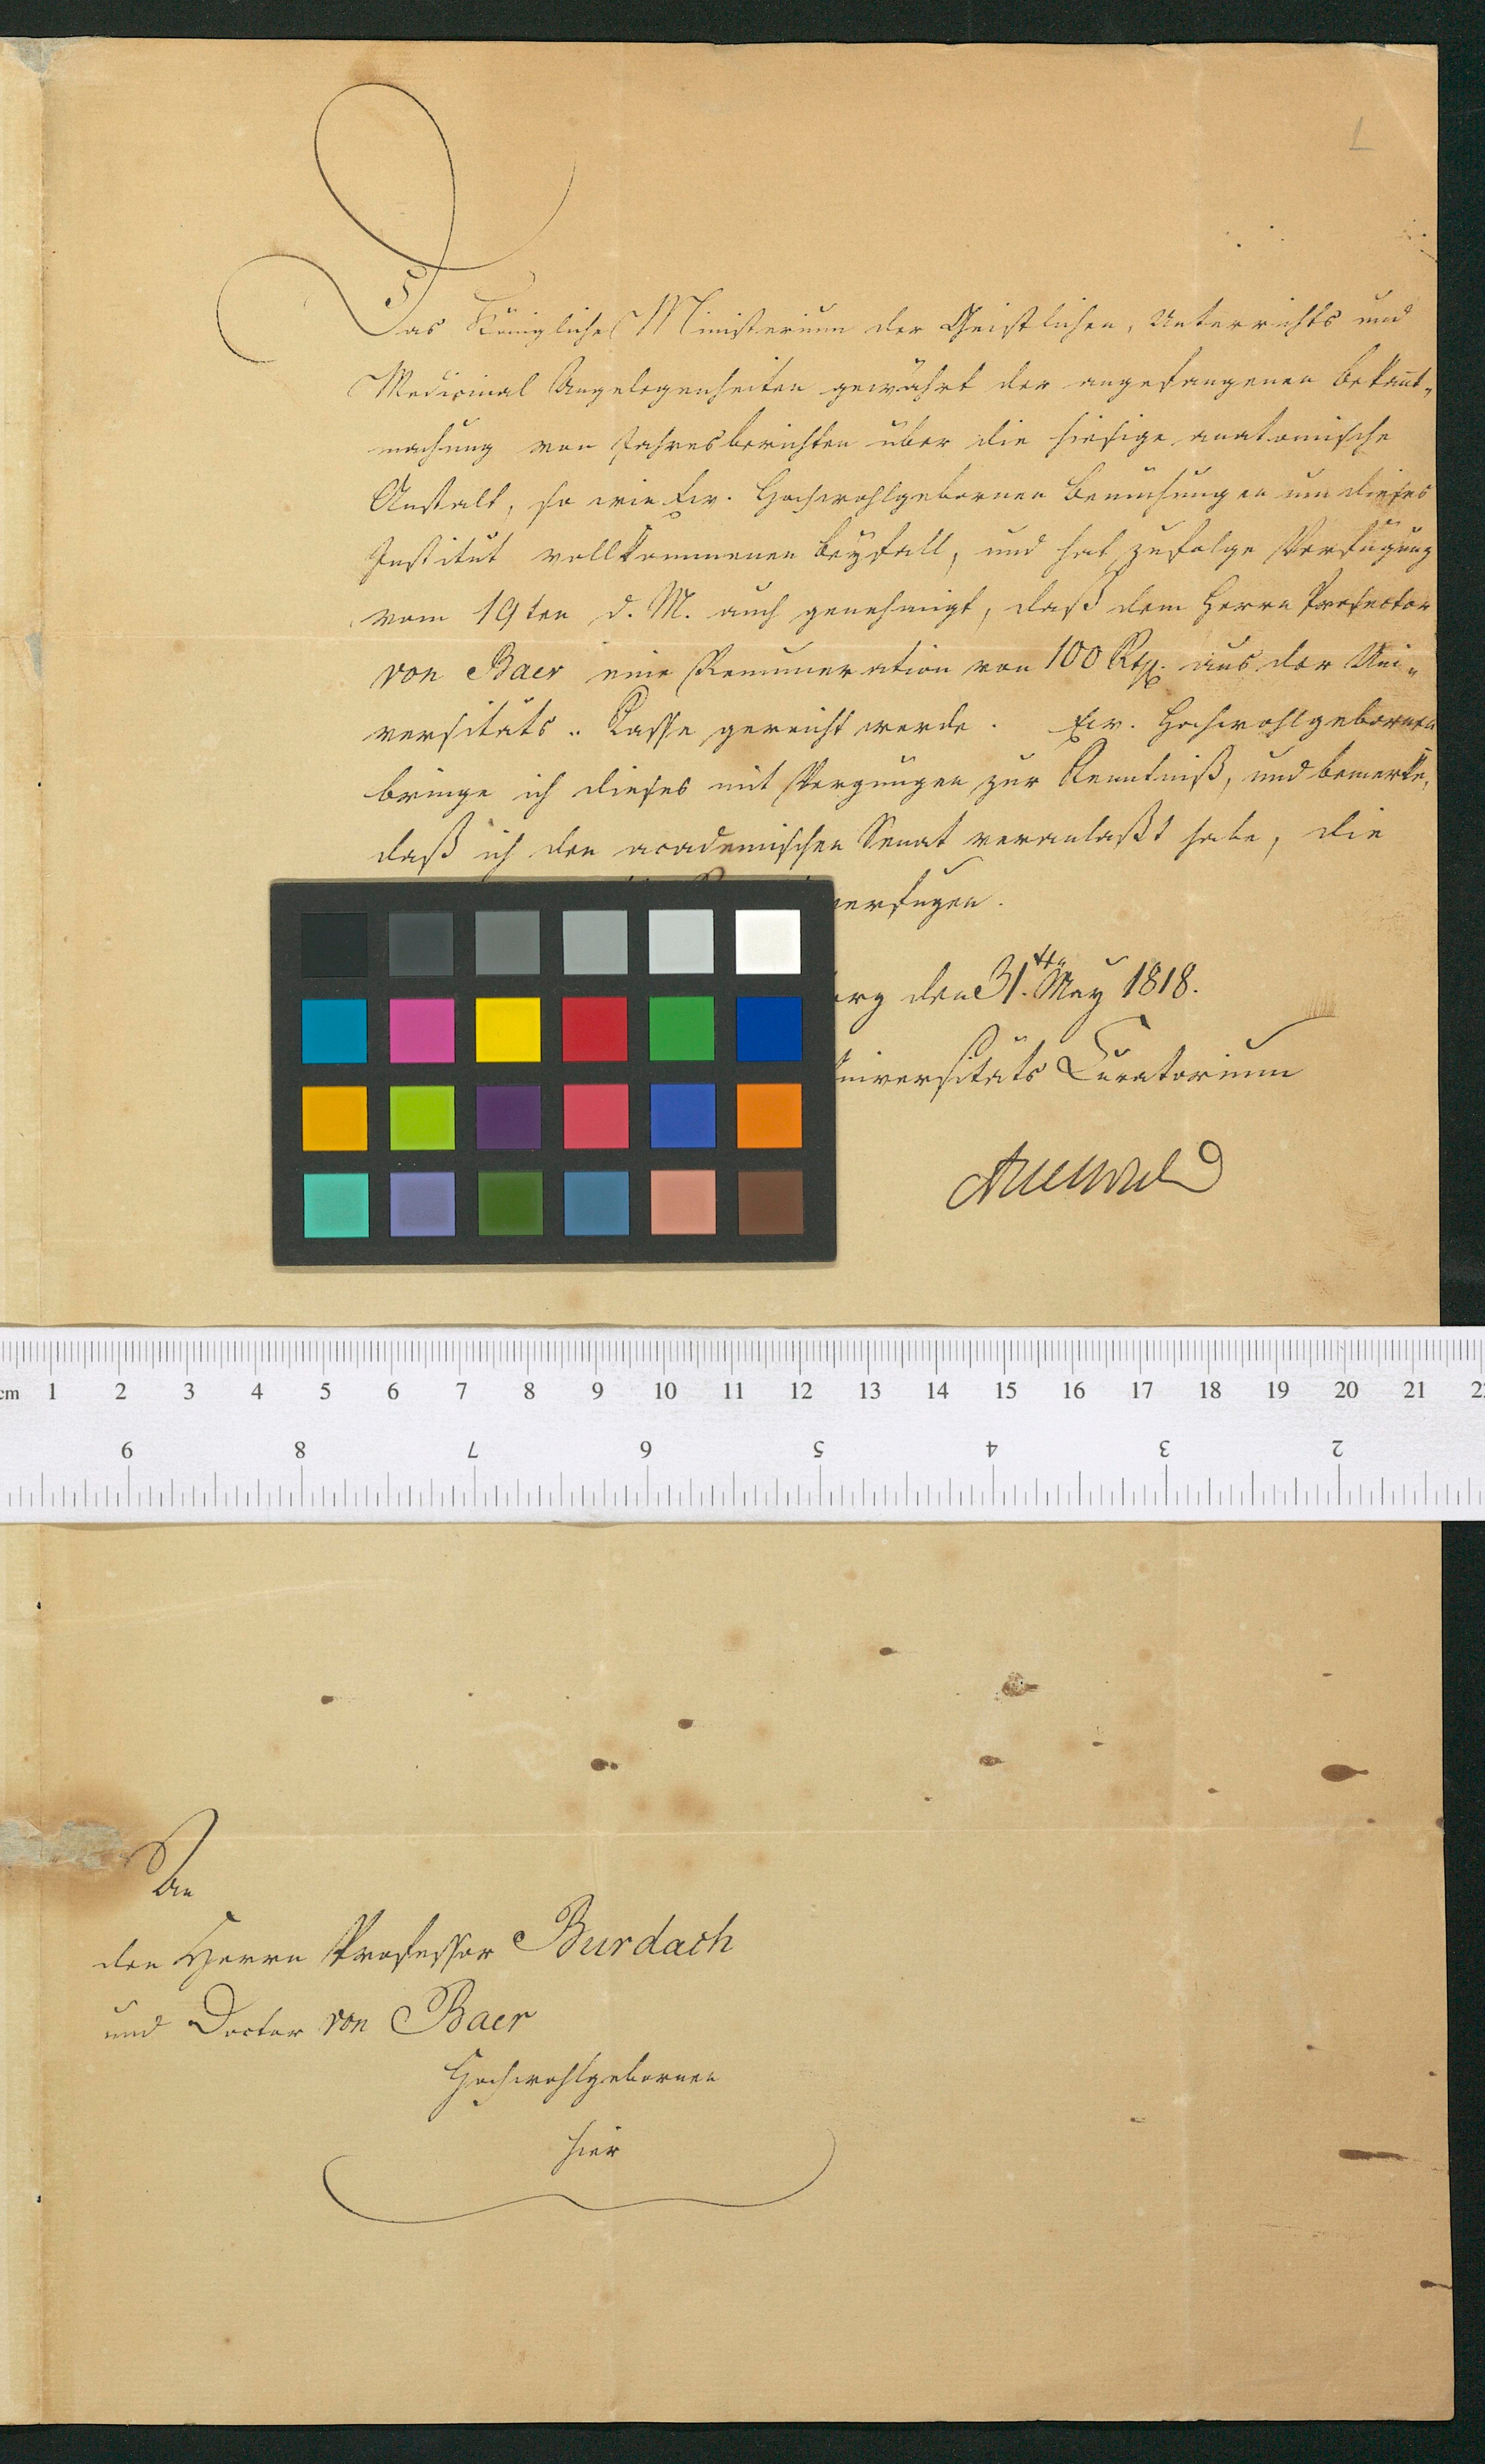 Das Königliche Ministerium der Geistlichen, Unterrichts und
Medicinal Angelegenheiten gewährt der angefangenen Bekañt-
machung von Jahresberichten über die hiesige anatomische
Anstalt, so wie Ew. Hochwohlgebornen Bemühungen um dieses
Institut vollkommenen Beyfall, und hat zufolge Verfügung
vom 19ten d. M. auch genehmigt, daß dem Herrn Prosector
von Baer eine Remuneration von 100 Rth. aus der Uni-
versitäts-Kasse gereicht werde. Ew. Hochwohlgebornen
bringe ich dieses mit Vergnügen zur Kenntniß, und bemerke,
daß ich den academischen Senat veranlaßt habe, die
verfügen.
erg den 31.ten May 1818.
Universitäts Curatorium
Auerswald
An
den Herrn Professor Burdach
und Doctor von Baer
Hochwohlgebornen
hier
1
cm 1 2 3 4 5 6 7 8 9 10 11 12 13 14 15 16 17 18 19 20 21 2
9 8 7 6 5 4 3 2